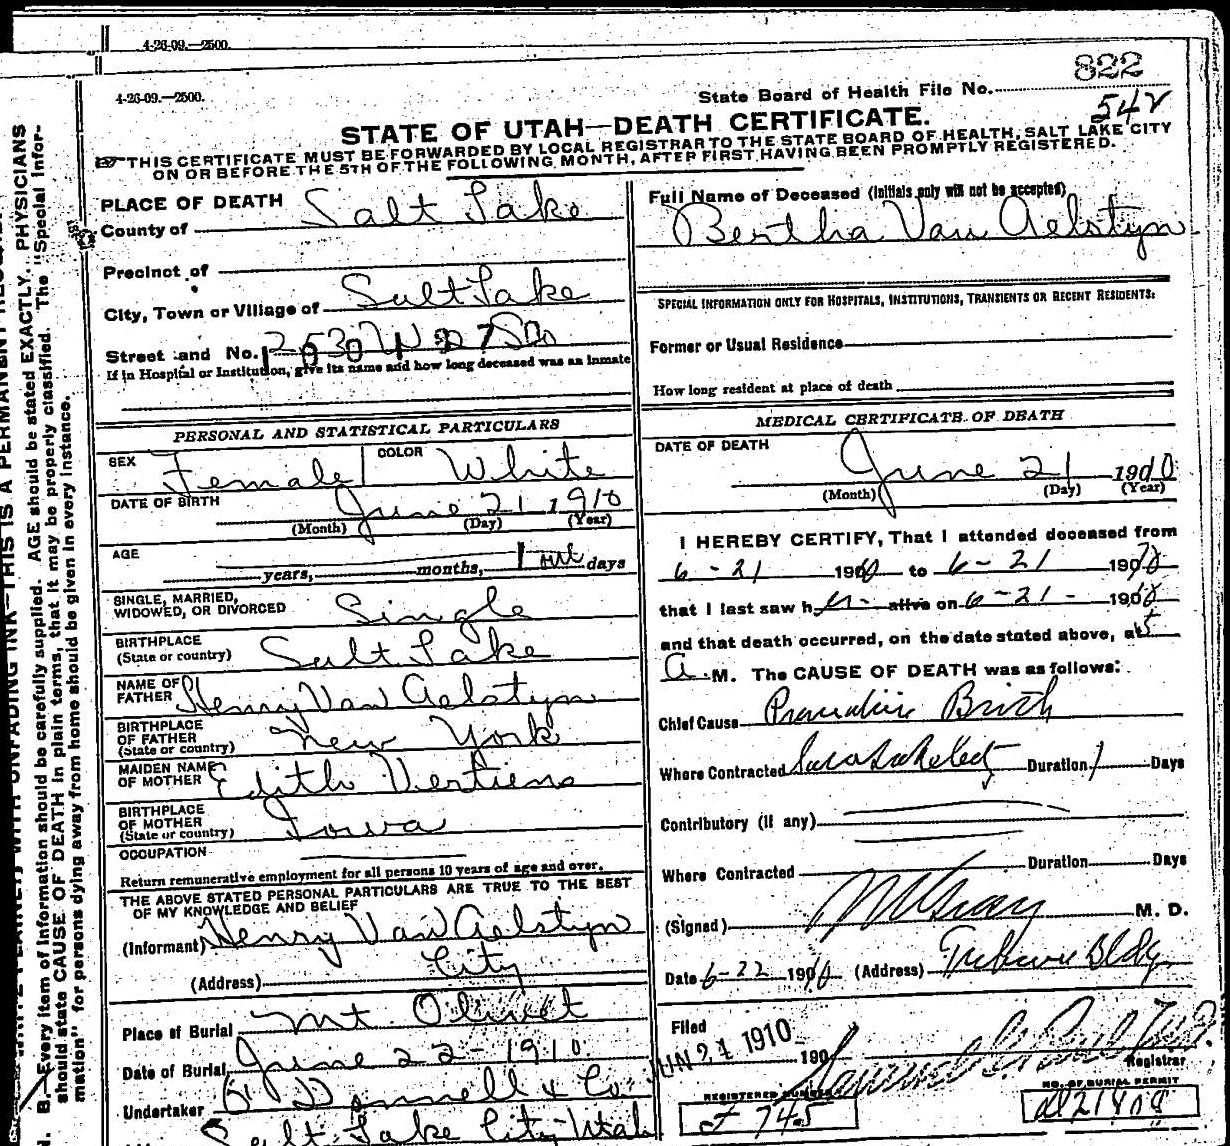 4-26-09.—2500.
4-26-09.—2500.
State Board of Health File No. 822
54v
STATE OF UTAH—DEATH CERTIFICATE.
THIS CERTIFICATE MUST BE FORWARDED BY LOCAL REGISTRAR TO THE STATE BOARD OF HEALTH, SALT LAKE CITY
ON OR BEFORE THE 5TH OF THE FOLLOWING MONTH, AFTER FIRST HAVING BEEN PROMPTLY REGISTERED.
PLACE OF DEATH
County of Salt Lake
Precinct of
City, Town or Village of Salt Lake
Street and No.
If in Hospital or Institution, give its name and how long deceased was an inmate
PERSONAL AND STATISTICAL PARTICULARS
SEX Female COLOR White
DATE OF BIRTH June 21 1910
(Month) (Day) (Year)
AGE
years, months, 1 days
SINGLE, MARRIED,
WIDOWED, OR DIVORCED Single
BIRTHPLACE
(State or country) Salt Lake
NAME OF
FATHER Henry Van Aelstyn
BIRTHPLACE
OF FATHER
(State or country) New York
MAIDEN NAME
OF MOTHER Edith
BIRTHPLACE
OF MOTHER
(State or country) Iowa
OCCUPATION
Return remunerative employment for all persons 10 years of age and over.
THE ABOVE STATED PERSONAL PARTICULARS ARE TRUE TO THE BEST
OF MY KNOWLEDGE AND BELIEF
(Informant) Henry Van Aelstyn
(Address) City
Place of Burial Mt. Olivet
Date of Burial, June 22-1910
Undertaker O'Donnell & Co
Salt Lake City Utah
Full Name of Deceased (Initials only will not be accepted)
Bertha Van Aelstyn
SPECIAL INFORMATION ONLY FOR HOSPITALS, INSTITUTIONS, TRANSIENTS OR RECENT RESIDENTS:
Former or Usual Residence
How long resident at place of death
MEDICAL CERTIFICATE OF DEATH
DATE OF DEATH June 21 1910
(Month) (Day) (Year)
I HEREBY CERTIFY, That I attended deceased from
6-21 1910 to 6-21 1910
that I last saw her alive on 6-21- 1910
and that death occurred, on the date stated above, at 5
A.M. The CAUSE OF DEATH was as follows:
Chief Cause Premature Birth
Where Contracted Salt Lake City Duration 1 Days
Contributory (if any)
Where Contracted Duration Days
(Signed) M. D.
Date 6-22 1910 (Address) Tribune Bldg
Filed JUN 21 1910 190
Registrar
REGISTERED NUMBER
745
NO. OF BURIAL PERMIT
B.—Every item of information should be carefully supplied. AGE should be stated EXACTLY. PHYSICIANS
should state CAUSE OF DEATH in plain terms, that it may be properly classified. The "Special Infor-
mation" for persons dying away from home should be given in every instance.